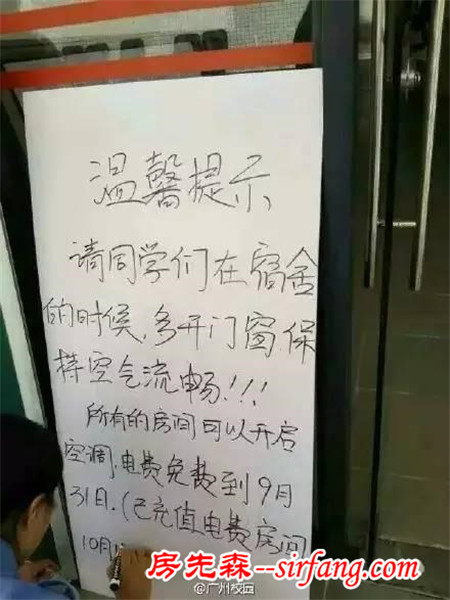 温馨提示
请同学们在宿舍
的时候,多开门窗,保
持空气流畅!!!
所有的房间可以开启
空调,电费免费到9月
31日.(已充值电费房间
10月1
房先森--sirfang.com
@广州校园